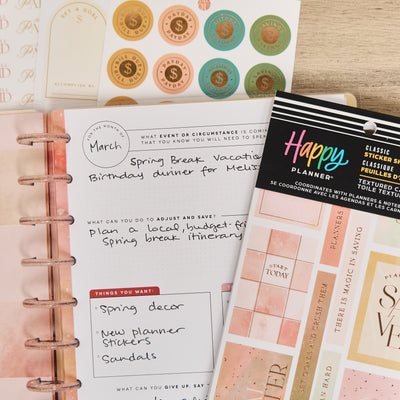 SET A GOAL
ACCOMPLISH BY
PAYDAY
PAYDAY
FOR THE MONTH OF
March
WHAT EVENT OR CIRCUMSTANCE IS COMING
THAT YOU KNOW YOU WILL NEED TO SPEN
Spring Break Vacatio
Birthday dinner for Melis
WHAT CAN YOU DO TO ADJUST AND SAVE?
Plan a local, budget-fri
Spring break itinerary
THINGS YOU WANT:
• Spring decor
• New planner
stickers
• Sandals
WHAT CAN YOU GIVE UP, SAY
Happy
PLANNER
CLASSIC
STICKER SH
CLASSIQUE
FEUILLES D'
TEXTURED CA
TOILE TEXTUR
COORDINATES WITH PLANNERS & NOTEB
SE COORDONNE AVEC LES AGENDAS ET LES CARN
START
TODAY
PLANNERS
THERE IS MAGIC IN SAVING
SET GOALS AND CRUSH THEM